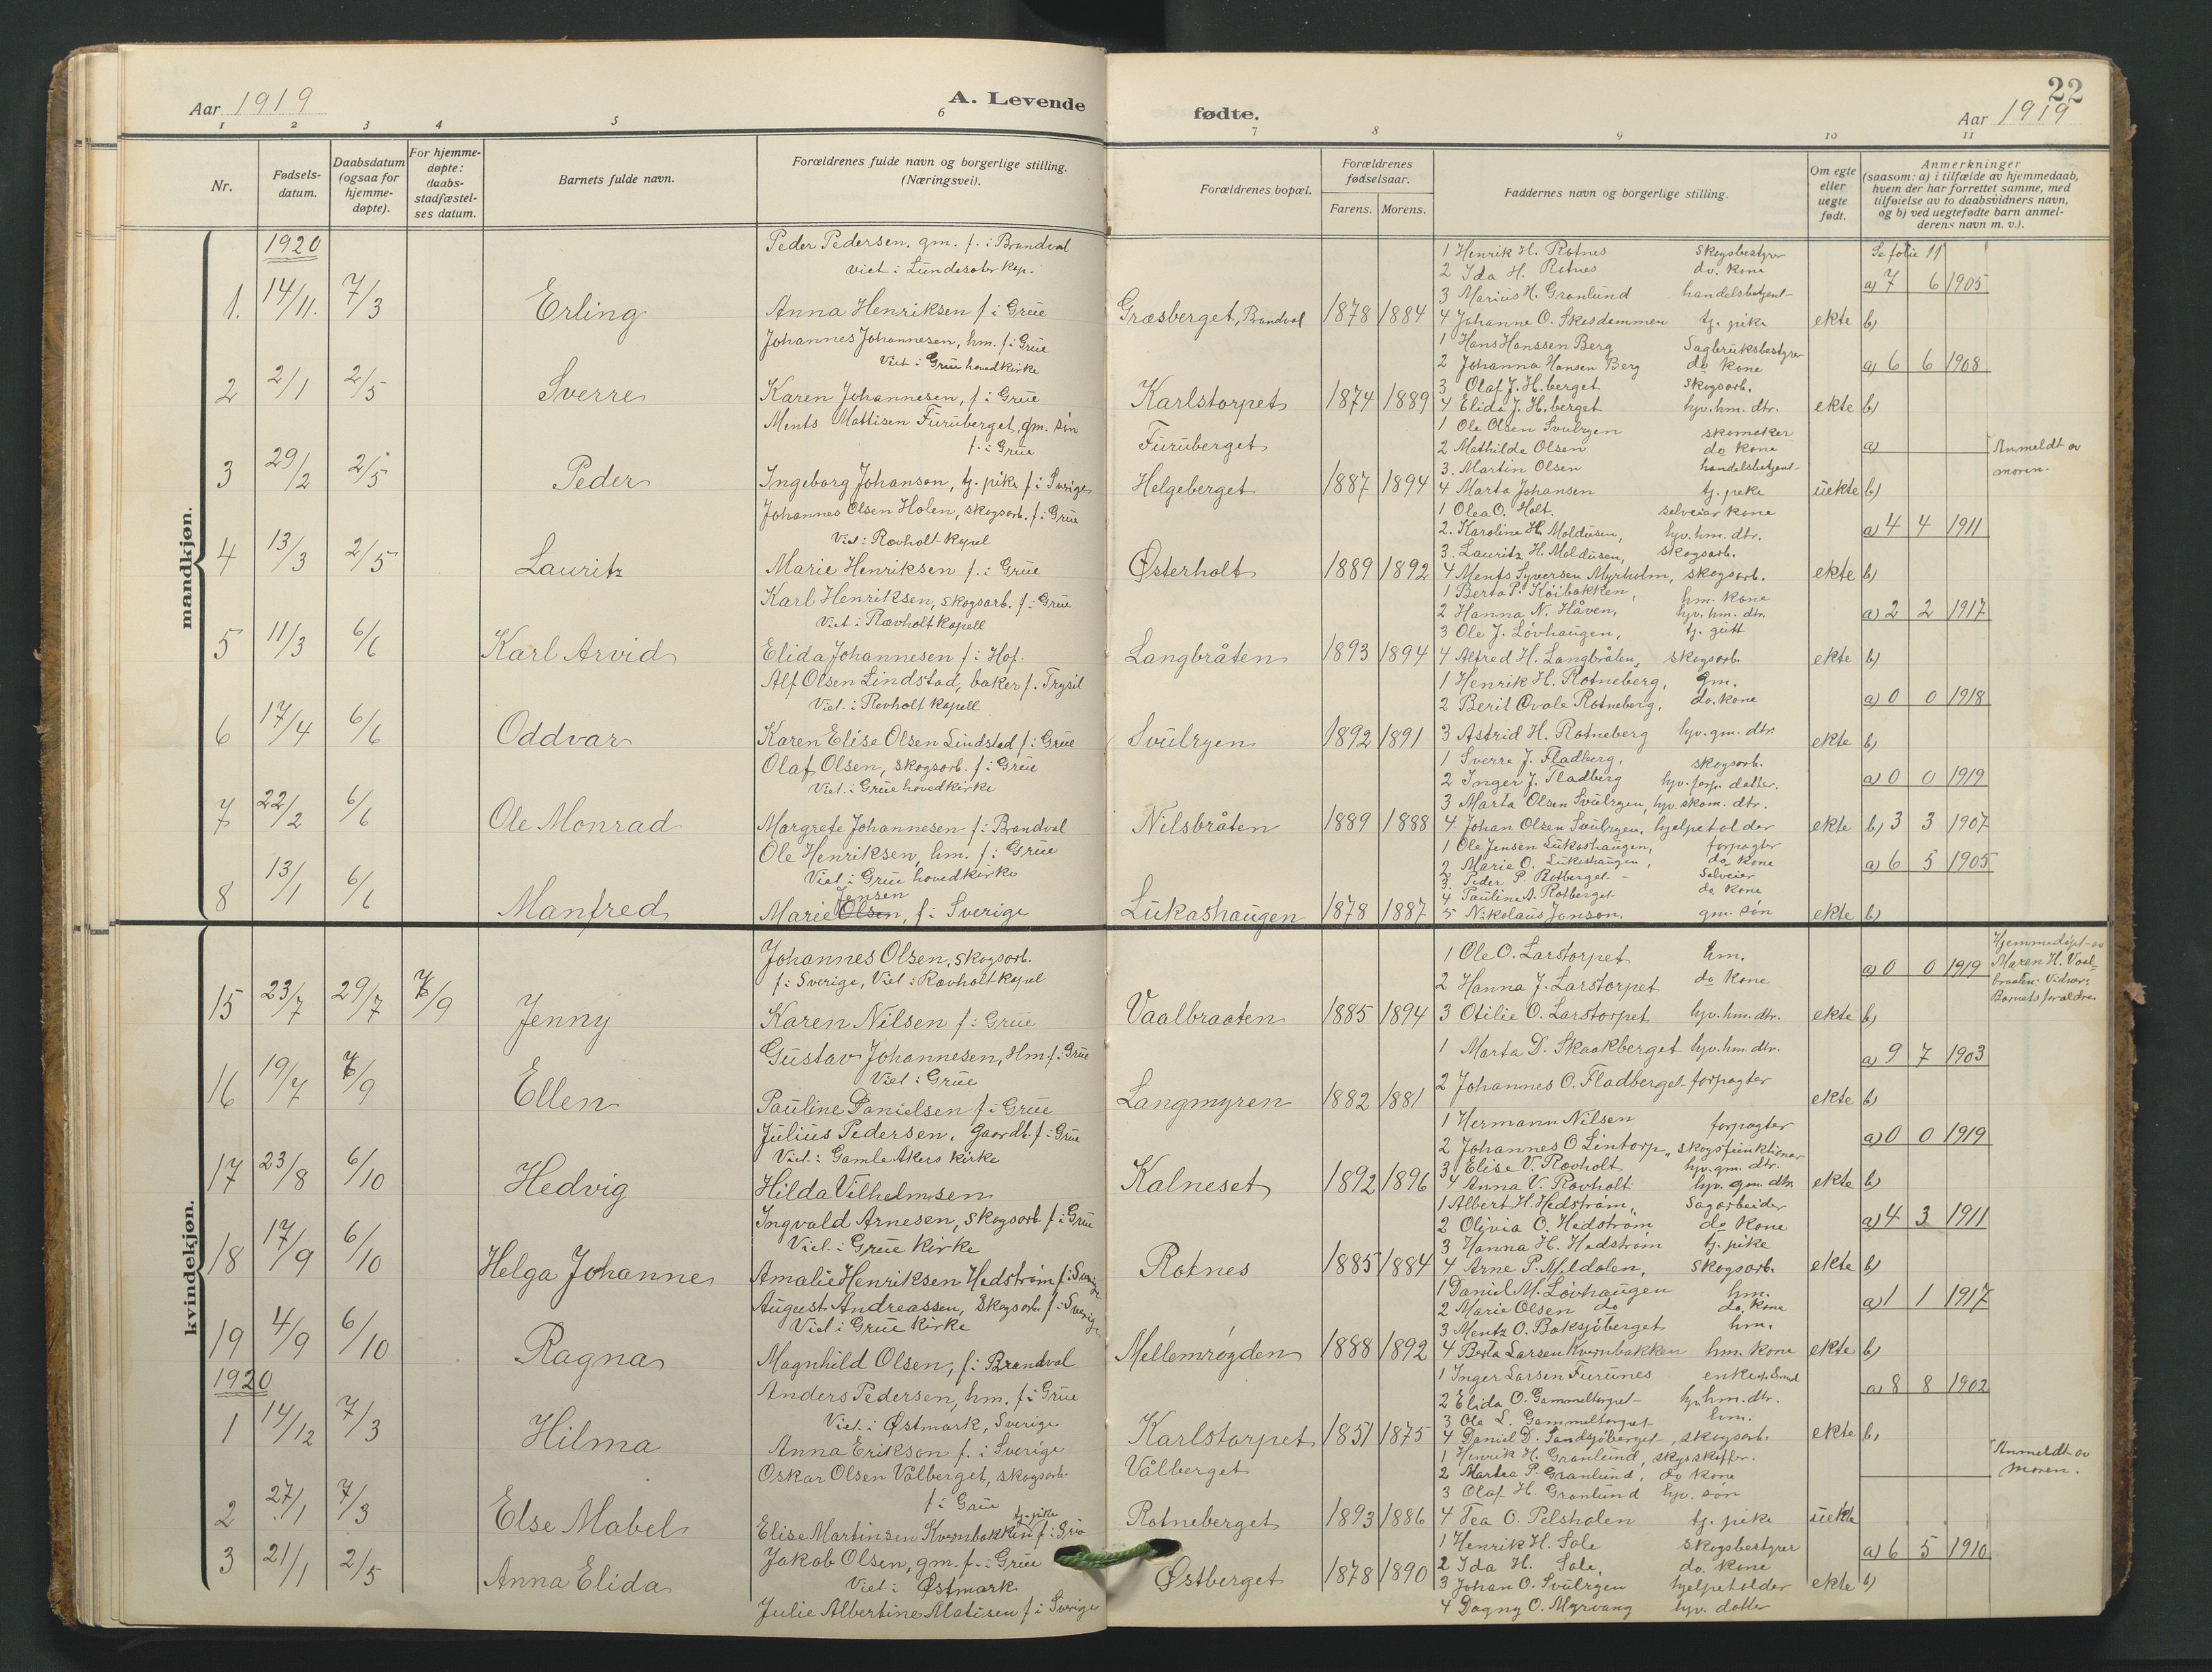 Aar 1919
A. Levende
fødte.
22
Aar 1919
1 2 3 4 5 6 7 8 9 10 11
Nr.
Fødsels-
datum.
Daabsdatum
(ogsaa for
hjemme-
døpte).
For hjemme-
døpte:
daabs-
stadfæstel-
ses datum.
Barnets fulde navn.
Forældrenes fulde navn og borgerlige stilling.
(Næringsvei).
Forældrenes bopæl.
Forældrenes
fødselsaar.
Farens. Morens.
Faddernes navn og borgerlige stilling.
Om egte
eller
uegte
født.
Anmerkninger
(saasom: a) i tilfælde av hjemmedaab,
hvem der har forrettet samme, med
tilføielse av to daabsvidners navn,
og b) ved uegtefødte barn anmel-
derens navn m. v.).
mandkjøn.
1920
1. 14/11. 7/3 Erling
Peder Pedersen. gm. f. i Brandval
viet i Lundersæter kap.
Anna Henriksen f i Grue
Græsberget, Brandval 1878 1884
1 Henrik H. Rotnes Skogsbestyrer
2 Ida H. Rotnes do. kone
3 Marius H. Grønlund handelsbetjent
4 Johanne O. Skasdammen tj. pike
ekte
Se folie 11
a) 7 6 1905
b)
2 2/1 2/5 Sverre
Johannes Johannesen, hm. f i Grue
Viet i Grue hovedkirke
Karen Johannesen, f i Grue
Karlstorpet 1874 1889
1 Hans Hanssen Berg Sagbruksbestyrer
2 Johanna Hansen Berg do kone
3 Olaf J. H.berget Skogsarb.
4 Elida J. H.berget hjv. hm. dtr.
ekte
a) 6 6 1908
b)
3 29/2 2/5 Peder
Ments Mattisen Furuberget, gm. søn
f. i Grue
Ingeborg Johanson, tj. pike f i Sverige
Furuberget
Helgeberget 1887 1894
1 Ole Olsen Svulryen skomaker
2 Mathilde Olsen do kone
3. Martin Olsen handelsbetjent
4 Marta Johansen tj. pike
uekte
a)
b)
Anmeldt av
moren.
4 13/3 2/5 Lauritz
Johannes Olsen Holen, skogsarb. f i Grue
Viet i Rovholt kapel
Marie Henriksen f. i Grue
Østerholt 1889 1892
1 Olea O. Holt. selveier kone
2. Karoline H. Moldusen, hjv. hm. dtr.
3. Lauritz H. Moldusen, skogsarb.
4 Ments Syversen Myrholm, skogsarb.
ekte
a) 4 4 1911
b)
5 11/3 6/6 Karl Arvid
Karl Henriksen, skogsarb. f i Grue
Viet i Rovholt kapell
Elida Johannesen f i Hof.
Langbråten 1893 1894
1 Berta P. Køibakken, hm. kone
2 Hanna N. Håven, hjv. hm. dtr.
3 Ole J. Løvhaugen, tj. gutt
4 Alfred H. Langbråten, skogsarb.
ekte
a) 2 2 1917
b)
6 17/4 6/6 Oddvar
Alf Olsen Lindstad, baker f. Trysil
Viet i Rovholt kapell
Karen Elise Olsen Lindstad f i Grue
Svulryen 1892 1891
1 Henrik H. Rotneberg, gm.
2 Berit Ovale Rotneberg, do. kone
3 Astrid H. Rotneberg hjv. gm. dtr.
ekte
a) 0 0 1918
b)
7 22/2 6/6 Ole Monrad
Olaf Olsen, skogsarb. f i Grue
Viet i Grue hovedkirke
Margrete Johannesen f i Brandval
Nilsbråten 1889 1888
1 Sverre J. Fladberg, skogsarb.
2 Inger J. Fladberg hjv. forp. datter.
3 Marta Olsen Svulryen, hjv. skom. dtr.
4. Johan Olsen Svulryen, hjelpetolder
ekte
a) 0 0 1919
b) 3 3 1907
8 13/1 6/6 Manfred
Ole Henriksen, hm. f i Grue
Viet i Grue hovedkirke
Jensen
Marie Olsen, f i Sverige
Lukashaugen 1878 1887
1 Ole Jensen Lukashaugen, forpagter
2 Marie O. Lukashaugen, do kone
3. Peder P. Rotberget Selveier
4 Pauline A. Rotberget do kone
5 Nikolaus Jonson, gm. søn
ekte
a) 6 5 1905
b)
kvindekjøn.
15 23/7 29/7 7/9 Jenny
Johannes Olsen, skogsarb.
f i Sverige, Viet i Rovholt kapel
Karen Nilsen f i Grue
Vaalbraaten 1885 1894
1 Ole O. Larstorpet hm.
2 Hanna J. Larstorpet do kone
3 Otilie O. Larstorpet hjv. hm. dtr.
ekte
a) 0 0 1919
b)
Hjemmedøpt av
Maren H. Vaal-
braaten: Vidner:
Barnets forældre.
16 19/7 7/9 Ellen
Gustav Johannesen, Hm. f i Grue
Viet i Grue
Pauline Danielsen f i Grue
Langmyren 1882 1881
1 Marta D. Skaakberget hjv. hm. dtr.
2 Johannes O. Fladberget forpagter
ekte
a) 9 7 1903
b)
17 23/8 6/10 Hedvig
Julius Pedersen, gaardb. f i Grue
Viet i Gamle Akers kirke
Hilda Vilhelmsen
Kalneset 1892 1896
1 Hermann Nilsen forpagter
2 Johannes O Lintorp, skogsfunktionær
3. Elise V. Rovholt hjv. gm. dtr.
4 Anna V. Rovholt hjv. gm. dtr.
ekte
a) 0 0 1919
b)
18 17/9 6/10 Helga Johanne
Ingvald Arnesen, skogsarb. f i Grue
Viet i Grue kirke
Amalie Henriksen Hedstrøm f i Sverige
Rotnes 1885 1884
1 Albert H. Hedstrøm, Sagarbeider
2 Olivia O. Hedstrøm do kone
3 Hanna H. Hedstrøm tj. pike
4 Arne P. Mildalen, skogsarb.
ekte
a) 4 3 1911
b)
19 4/9 6/10 Ragna
August Andreassen, skogsarb. f i Sverige
Viet i Grue kirke
Magnhild Olsen, f i Brandval
Mellemrøgden 1888 1892
1 Daniel M. Løvhaugen hm.
2 Marie Olsen do do. kone
3 Mentz O. Baksjøberget hm.
4 Berta Larsen Kvernbakken hm. kone
ekte
a) 1 1 1917
b)
1920
1 14/12 7/3 Hilma
Anders Pedersen, hm. f i Grue
Viet i Østmark, Sverige
Anna Erikson f. i Sverige
Karlstorpet 1851 1875
1 Inger Larsen Furunes enke
2 Elida O. Gammeltorpet hjv. hm. dtr.
3 Ole L. Gammeltorpet hm.
4 Daniel D. Sandsjøberget, skogsarb.
ekte
a) 8 8 1902
b)
2 27/1 7/3 Else Mabel
Oskar Olsen Vålberget, skogsarb.
f i Grue
tj. pike
Elise Martinsen Kvernbakken f i Grue
Vålberget
Rotneberget 1893 1886
1 Henrik H. Grønlund,
2 Martea P. Grønlund, do kone
3 Olaf H. Grønlund hjv. søn
4 Tea O. Pelshølen tj. pike
uekte
Anmeldt av
moren.
3 21/1 2/5 Anna Elida
Jakob Olsen, gm. f. i Grue
Viet i Østmark
Julie Albertine Matisen f i Sverige
Østberget 1878 1890
1 Henrik H. Sole skogsbestyrer
2 Ida H. Sole, do. kone
3 Johan O. Svulryen hjelpetolder
4 Dagny O. Myrvang hjv. datter
ekte
a) 6 5 1910
b)